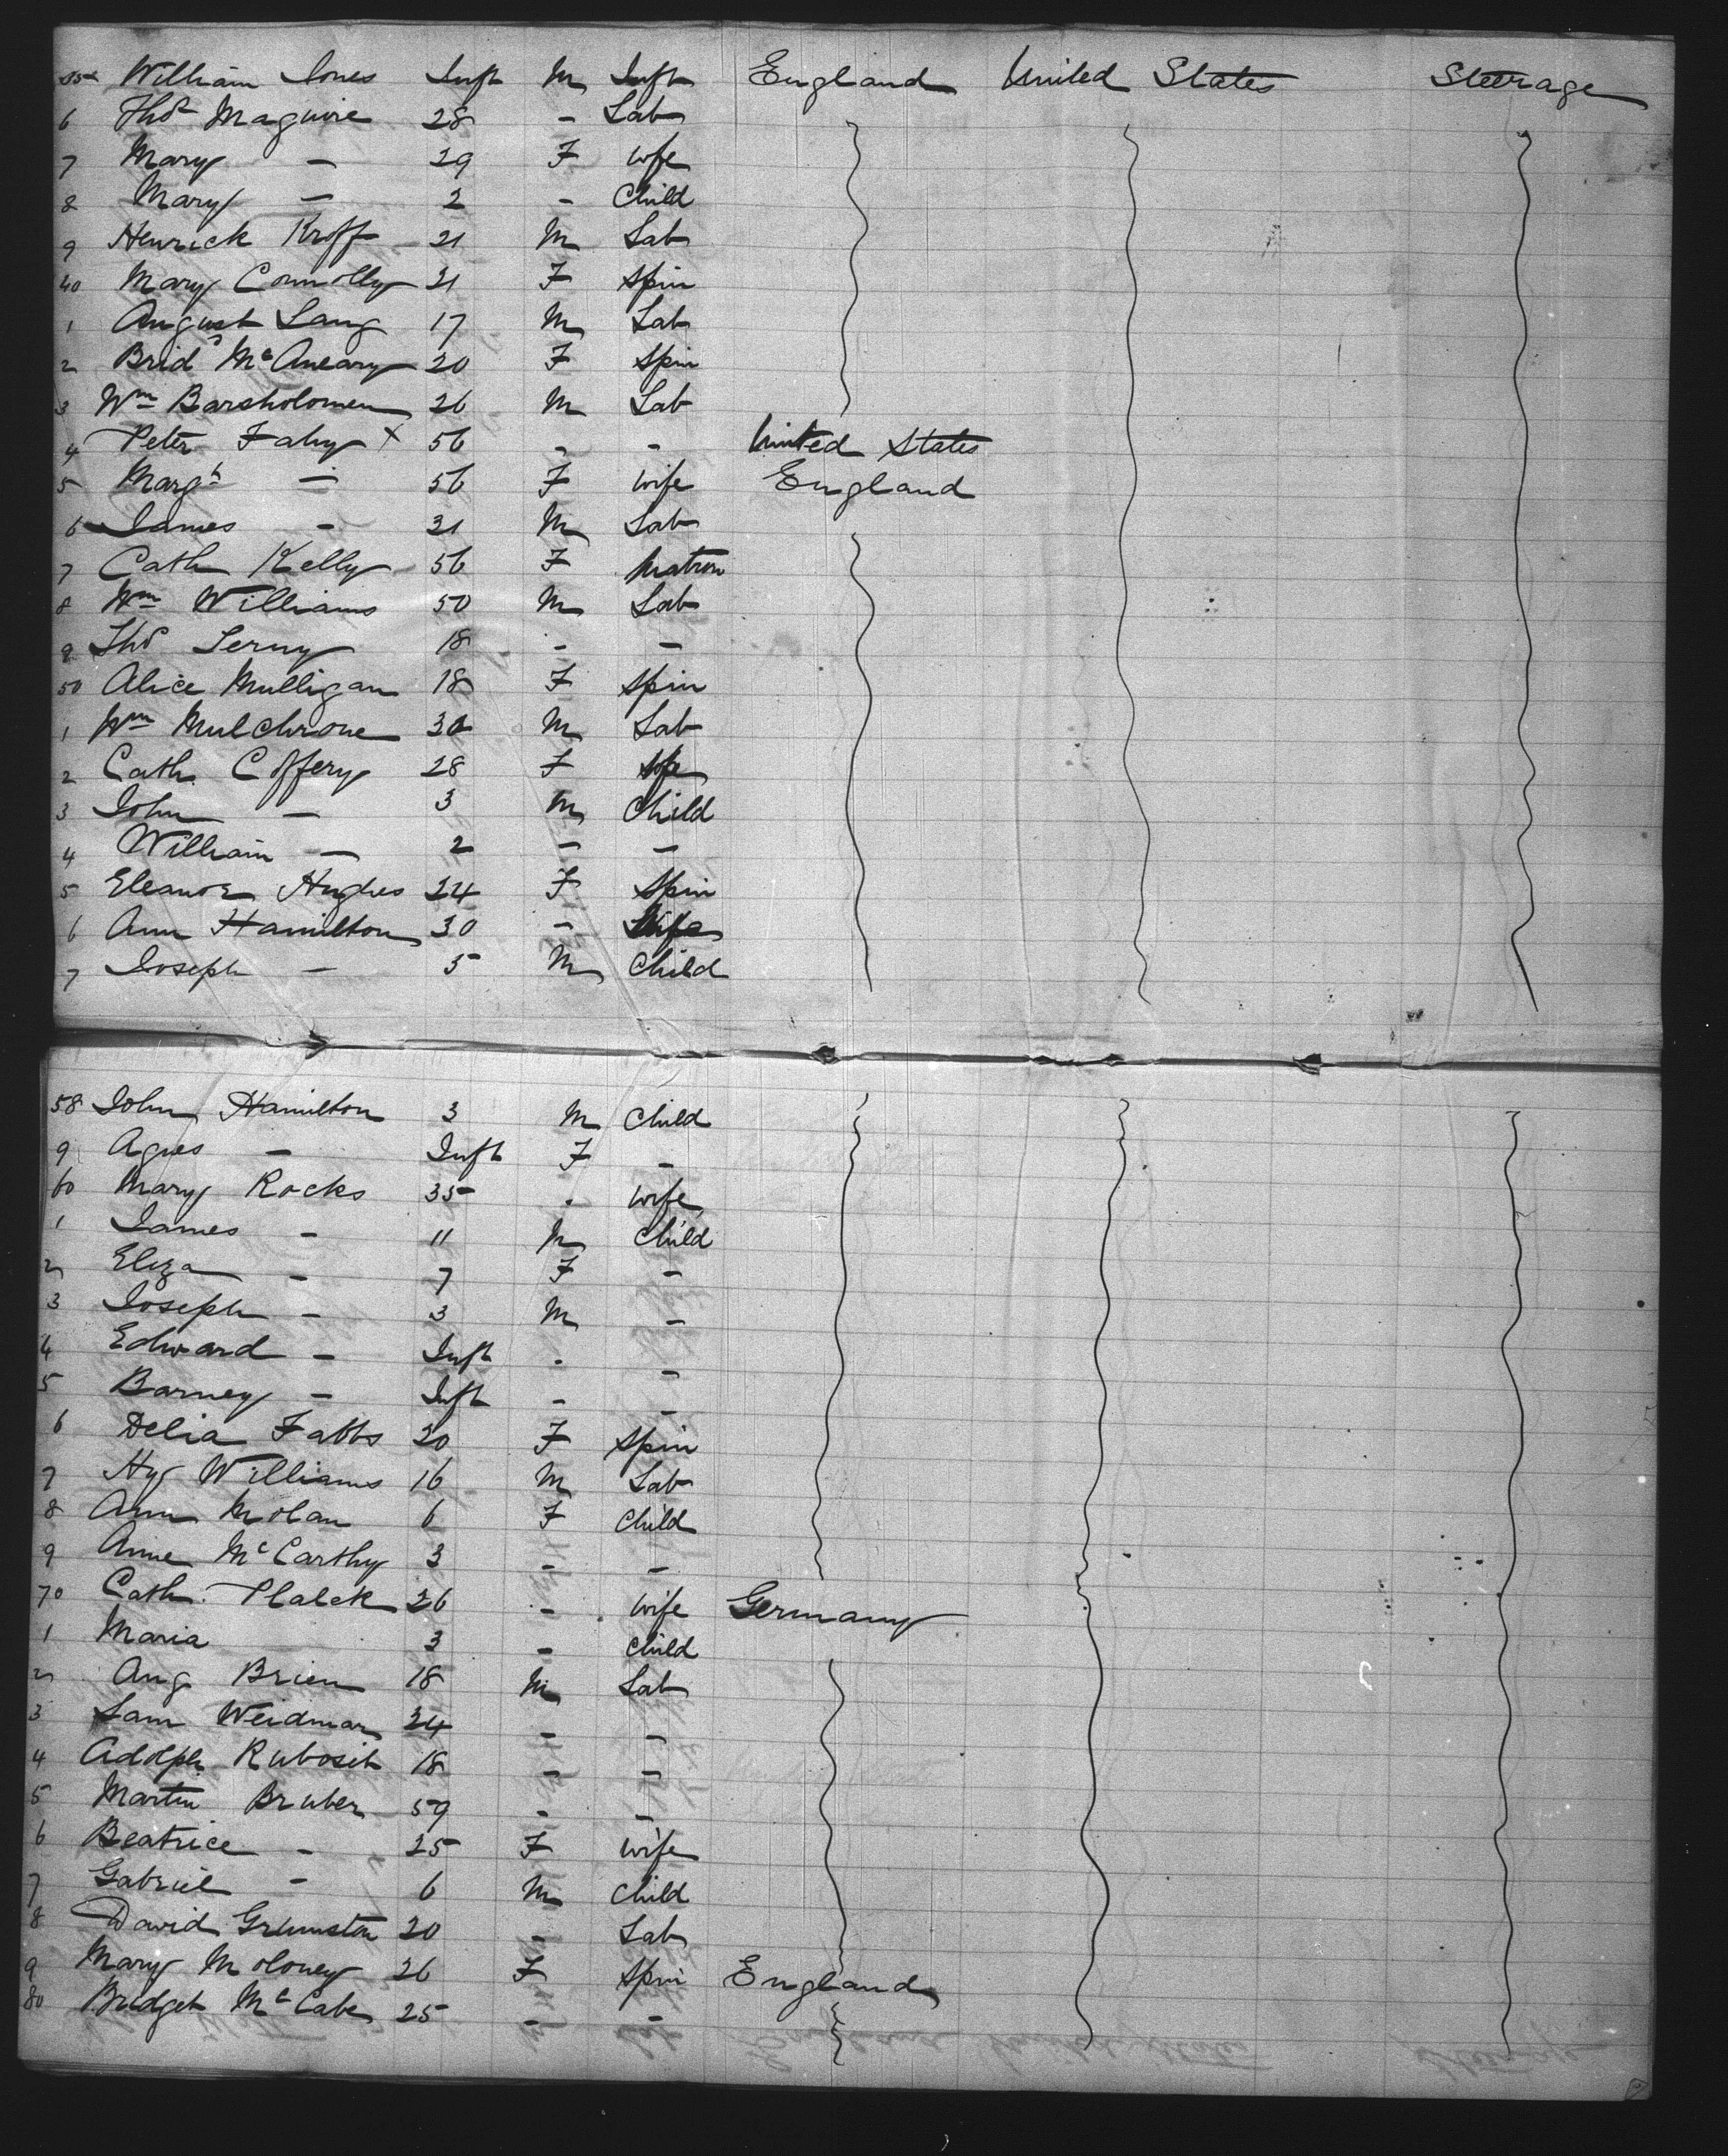 35 William Jones Inft M Inft England United States Steerage
6 Thos Maguire 28 - Lab
7 Mary - 29 F wife
8 Mary - 2 - Child
9 Henrick Kroff 21 M Lab
40 Mary Connolly 21 F Spin
1 August Lang 17 M Lab
2 Brid McAneary 20 F Spin
3 Wm Barsholomew 26 M Lab
4 Peter Fahy X 56 - - United States
5 Margt - 56 F wife England
6 James - 21 M Lab
7 Cath Kelly 56 F Matron
8 Wm Williams 50 M Lab
9 Thos 18 - -
50 Alice Mulligan 18 F Spin
1 Wm Mulchrone 30 M Lab
2 Cath. Coffery 28 F
3 John - 3 M Child
4 William - 2 - -
5 Eleanor Hughes 24 F Spin
6 Ann Hamilton 30 - Wife
7 Joseph - 5 M Child
58 John Hamilton 3 M Child
9 Agnes - Inft F -
60 Mary Rocks 35 - wife
1 James - 11 M Child
2 Eliza - 7 F -
3 Joseph - 3 M -
4 Edward - Inft - -
5 Barney - Inft - -
6 Delia Fabbs 20 F Spin
7 Hy Williams 16 M Lab
8 Ann Molan 6 F Child
9 Anne McCarthy 3 - -
70 Cath. Plalek 26 - wife Germany
1 Maria 3 - Child
2 Aug Brien 18 M Lab
3 Sam Weidman 24 - -
4 Adolph. Rubosik 18 - -
5 Martin Bruber 59 - -
6 Beatrice - 25 F wife
7 Gabriel - 6 M Child
8 David Grumston 20 - Lab
9 Mary Moloney 26 F Spin England
80 Bridget McCabe 25 - -